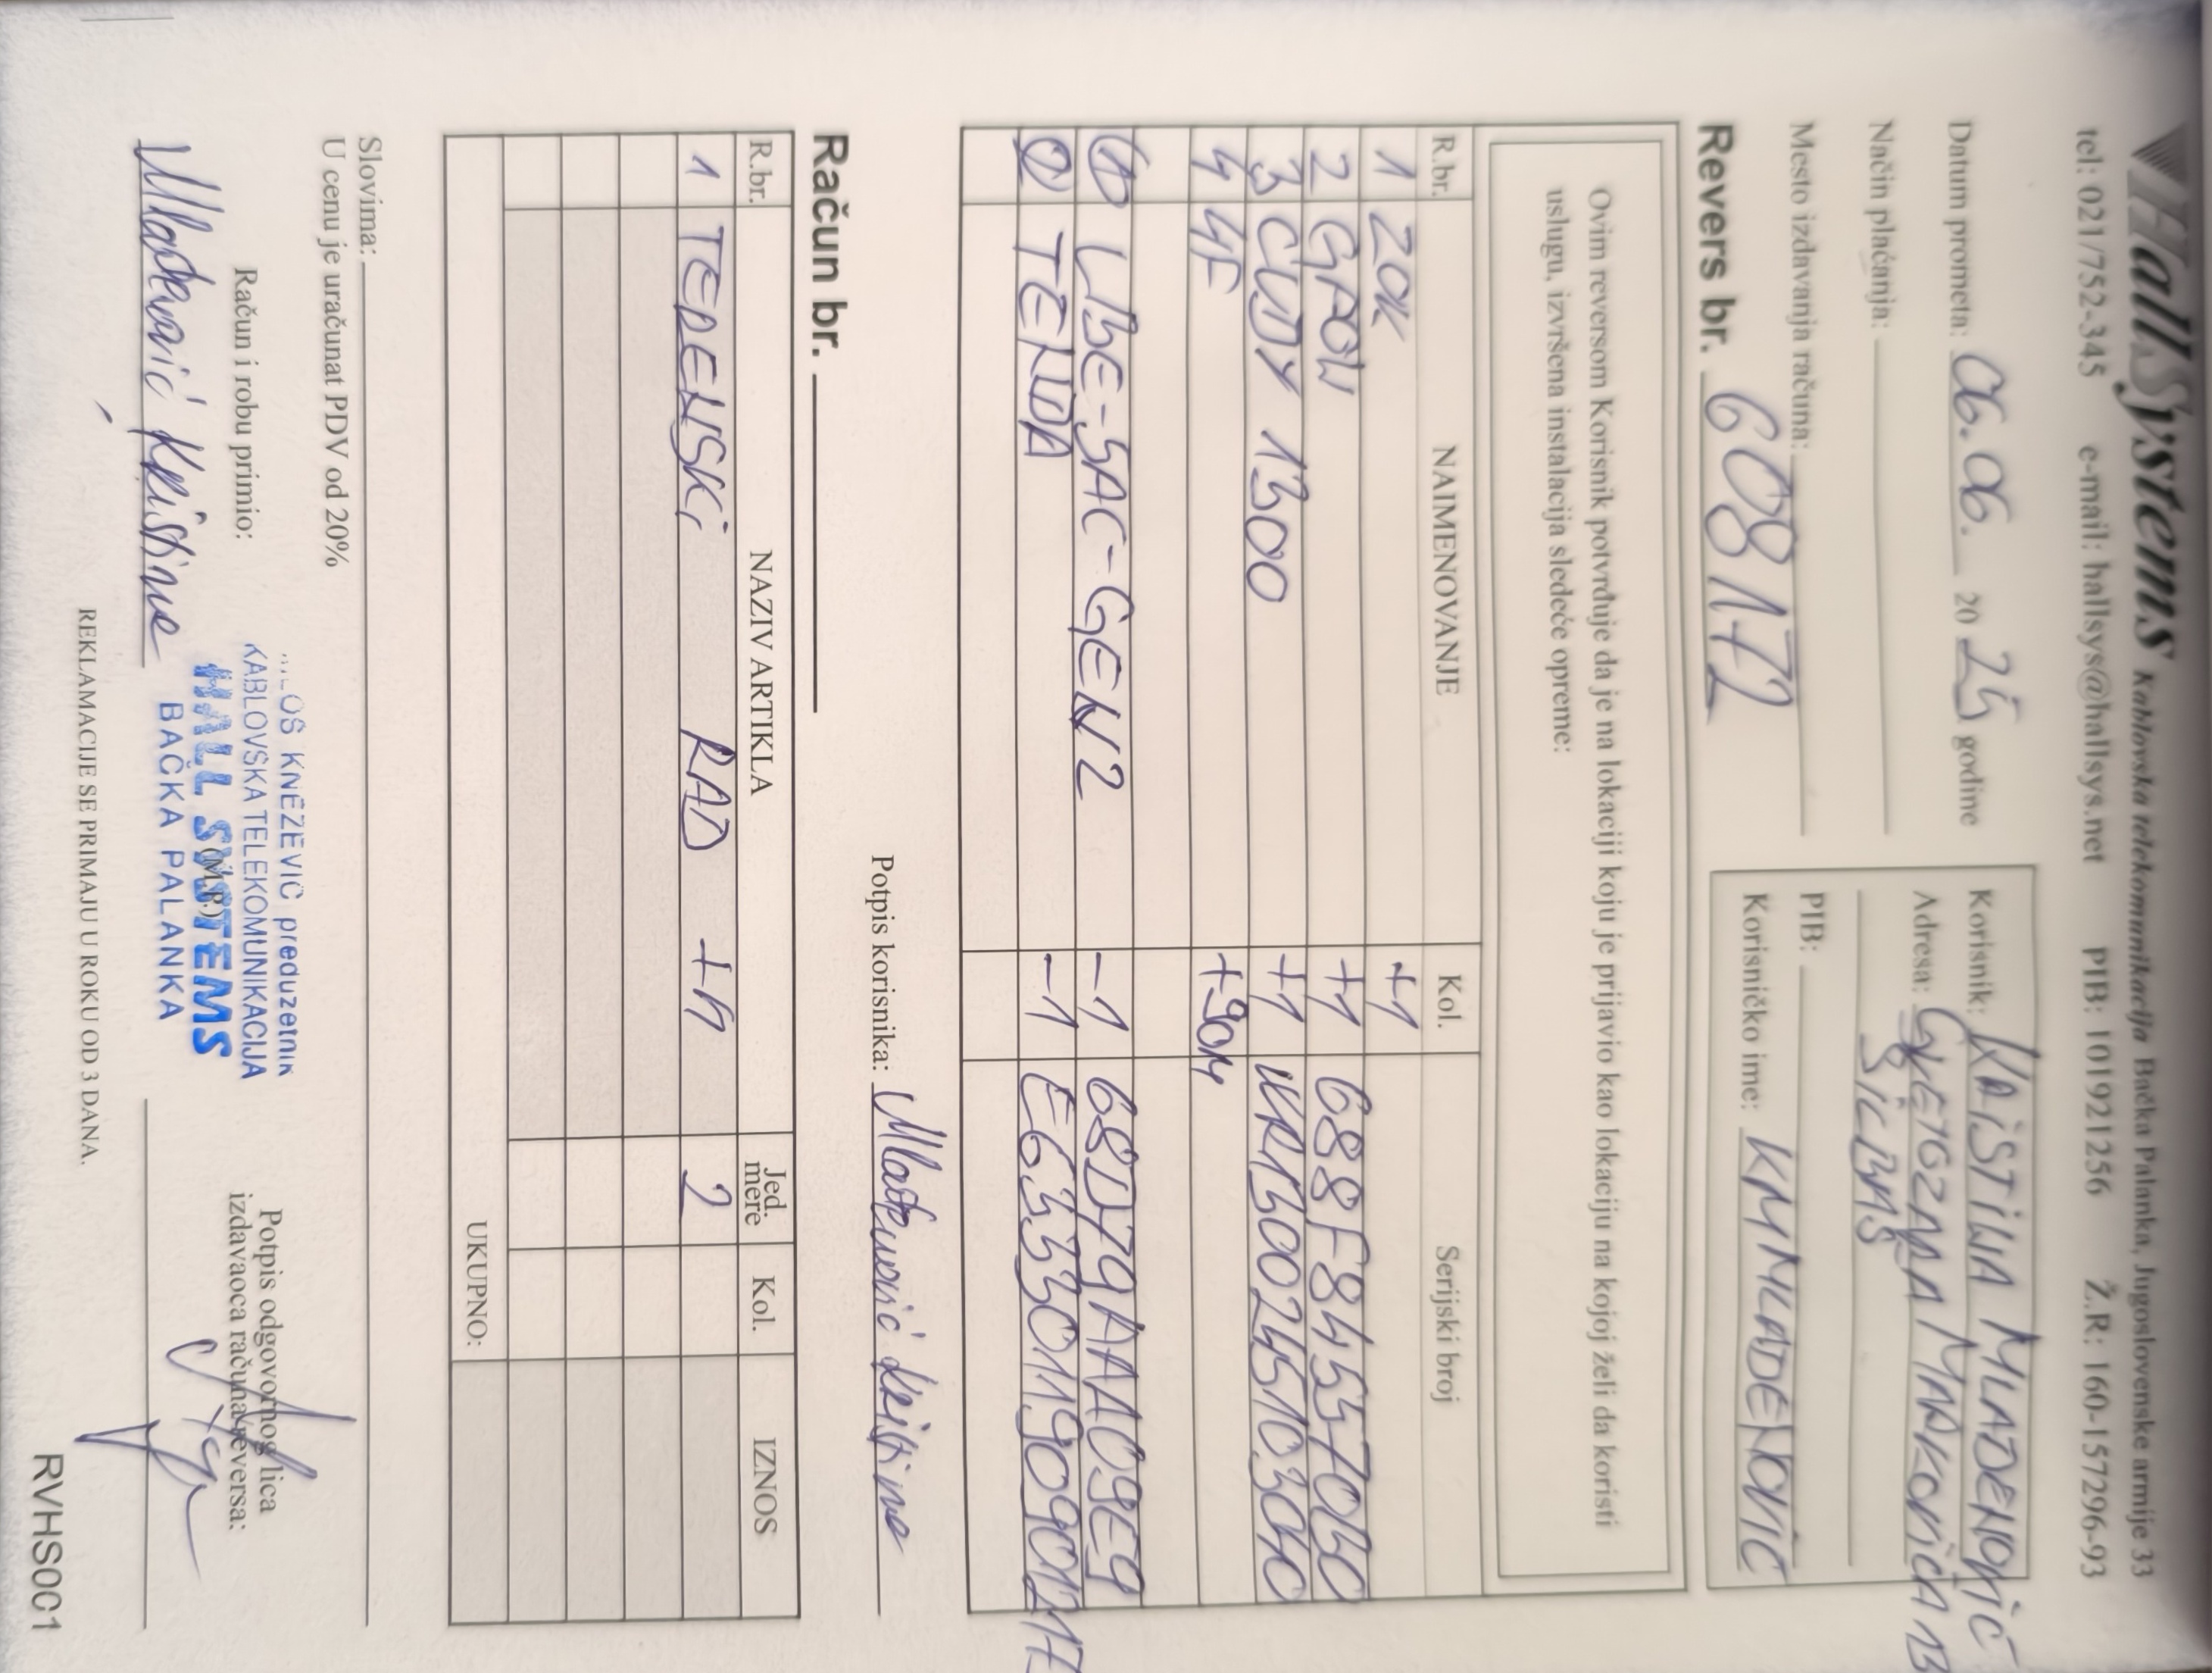 HallSystems Kablovska telekomunikacija Bačka Palanka, Jugoslovenske armije 33
tel: 021/752-345 e-mail: hallsys@hallsys.net PIB: 101921256 Ž.R: 160-157296-93
Datum prometa: 06.06. 20 25 godine
Način plaćanja:
Mesto izdavanja računa:
Korisnik: KRISTINA MLADENOVIĆ
Adresa: SVETOZARA MARKOVIĆA 13
PIB:
Korisničko ime: KMMLADENOVIC
Revers br. 608172
Ovim reversom Korisnik potvrđuje da je na lokaciji koju je prijavio kao lokaciju na kojoj želi da koristi
uslugu, izvršena instalacija sledeće opreme:
R.br. NAIMENOVANJE Kol. Serijski broj
1 ZOK +1
2 GPON +1 688F845570B0
3 CUDY 1300 +1 WR1300245103040
4 4F +90M
1 LBE-5AC-GEN2 -1 68D79AAA09E9
2 TENDA -1
Potpis korisnika: Mladenović Kristina
Račun br.
R.br. NAZIV ARTIKLA Jed. mere Kol. IZNOS
1 TERENSKI RAD +h 2
UKUPNO:
Slovima:
U cenu je uračunat PDV od 20%
Račun i robu primio:
Mladenović Kristina
KNEŽEVIĆ preduzetnik
KABLOVSKA TELEKOMUNIKACIJA
HALL SYSTEMS
(M.P.)
BAČKA PALANKA
Potpis odgovornog lica
izdavaoca računa/reversa:
REKLAMACIJE SE PRIMAJU U ROKU OD 3 DANA.
RVHS001